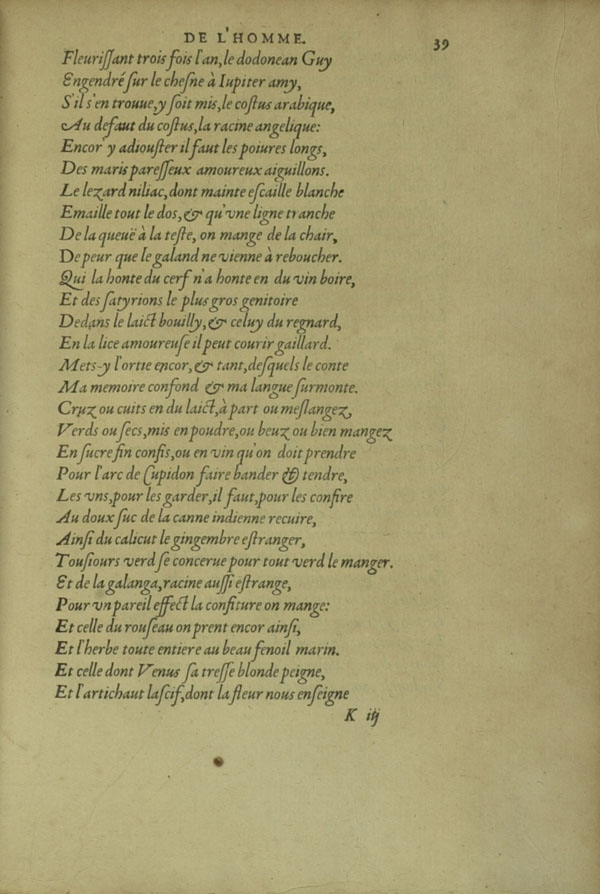 DE L'HOMME.
39
Fleuriſſant trois fois l'an, le dodonean Guy
Engendré ſur le cheſne à Iupiter amy,
S'il s'en trouue, y ſoit mis, le coſtus arabique,
Au defaut du coſtus, la racine angelique:
Encor' y adiouſter il faut les poiures longs,
Des maris pareſſeux amoureux aiguillons.
Le lezard niliac, dont mainte eſcaille blanche
Emaille tout le dos, & qu'vne ligne tranche
De la queuë à la teſte, on mange de la chair,
De peur que le galand ne vienne à reboucher.
Qui la honte du cerf n'a honte en du vin boire,
Et des ſatyrions le plus gros genitoire
Dedans le laict bouilly, & celuy du regnard,
En la lice amoureuſe il peut courir gaillard.
Mets-y l'ortie encor, & tant, deſquels le conte
Ma memoire confond & ma langue ſurmonte.
Cruz ou cuits en du laict, à part ou meſlangez,
Verds ou ſecs, mis en poudre, ou beuz ou bien mangez
En ſucre fin confis, ou en vin qu'on doit prendre
Pour l'arc de Cupidon faire bander & tendre,
Les vns, pour les garder, il faut, pour les confire
Au doux ſuc de la canne indienne recuire,
Ainſi du calicut le gingembre eſtranger,
Touſiours verd ſe concerue pour tout verd le manger.
Et de la galanga, racine auſſi eſtrange,
Pour vn pareil effect la confiture on mange:
Et celle du rouſeau on prent encor ainſi,
Et l'herbe toute entiere au beau fenoil marin.
Et celle dont Venus ſa treſſe blonde peigne,
Et l'artichaut laſcif, dont la fleur nous enſeigne
K iij